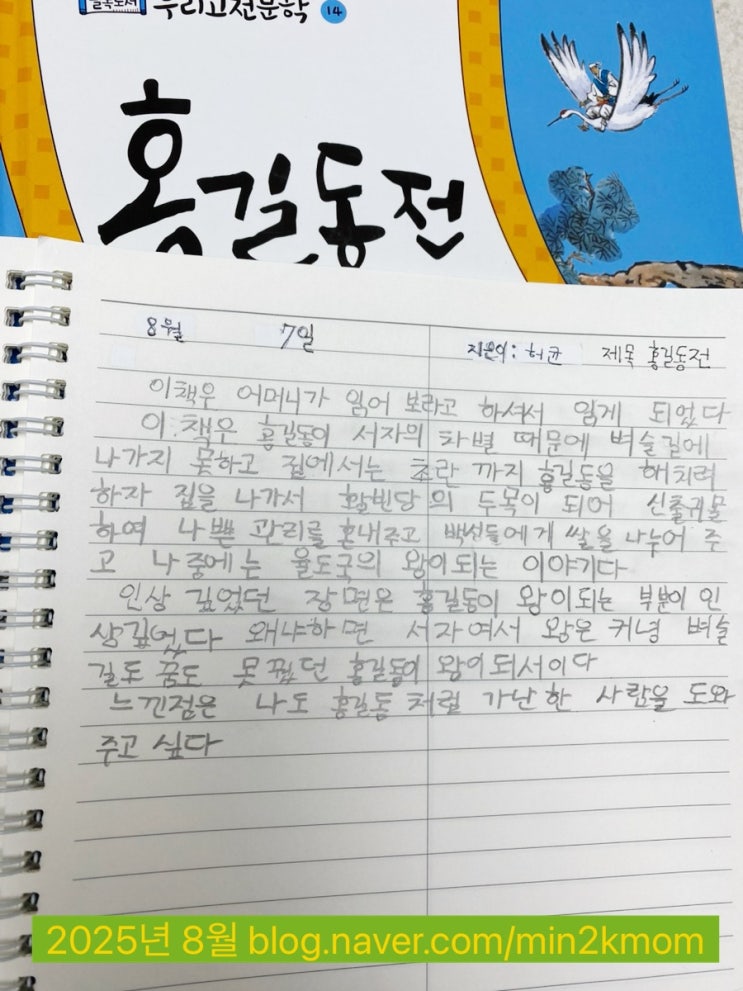 필독도서 우리고전문학 14
홍길동전
8월 7일 지은이: 허균 제목 홍길동전
이책은 어머니가 읽어 보라고 하셔서 읽게 되었다
이 책은 홍길동이 서자의 차별 때문에 벼슬길에
나가지 못하고 집에서는 초란 까지 홍길동을 해치려
하자 집을 나가서 활빈당의 두목이 되어 신출귀몰
하여 나쁜 관리를 혼내주고 백성들에게 쌀을 나누어 주
고 나중에는 율도국의 왕이되는 이야기다
인상 깊었던 장면은 홍길동이 왕이되는 부분이 인
상깊었다 왜냐하면 서자여서 왕은 커녕 벼슬
길도 꿈도 못 꿨던 홍길동이 왕이되서이다
느낀점은 나도 홍길동 처럼 가난한 사람을 도와
주고 싶다
2025년 8월 blog.naver.com/min2kmom